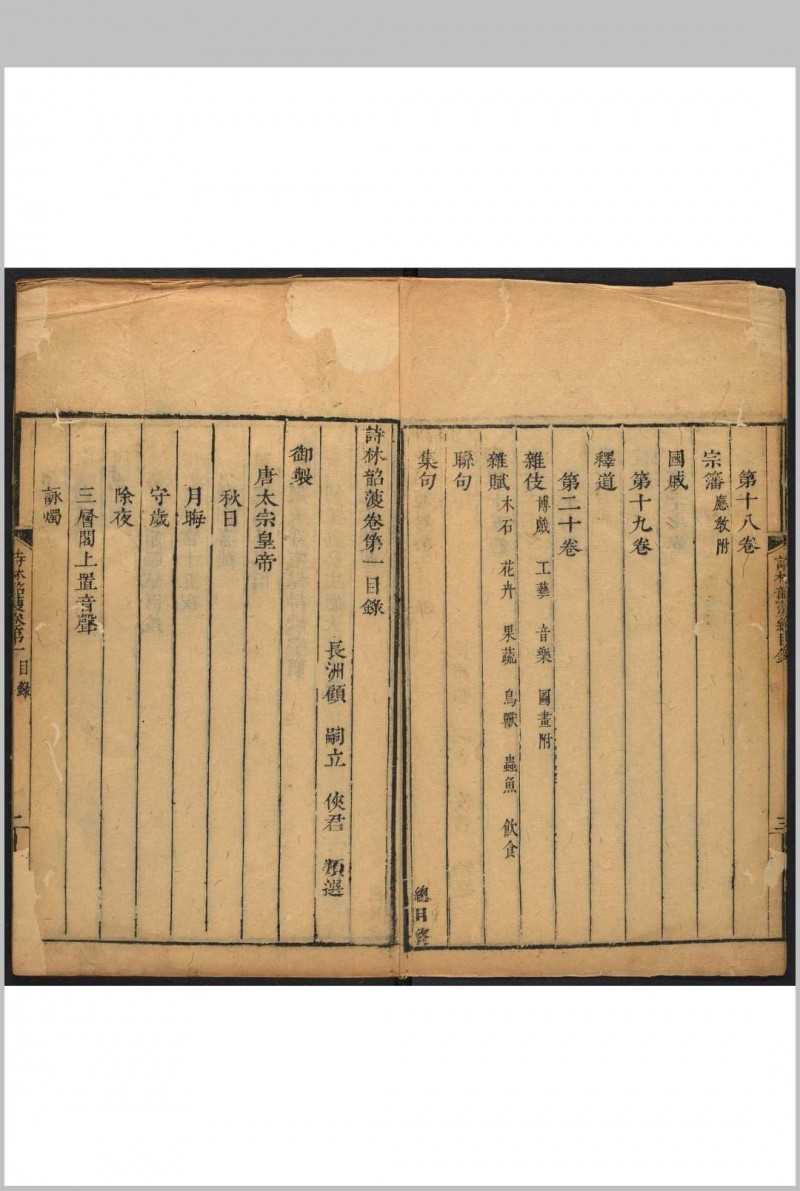 第十八卷
宗藩 應教附
國戚
第十九卷
釋道
第二十卷
雜伎 博戲 工藝 音樂 圖畫附
雜賦 木石 花卉 果蔬 鳥獸 蟲魚 飲食
聯句
集句
總目終
詩林韶濩卷第一目錄
長洲顧 嗣立 俠君 類選
御製
唐太宗皇帝
秋日
月晦
守歲
除夜
三層閣上置音聲
詠燭
詩林韶濩卷第一 目錄
詩林韶濩總目錄
三